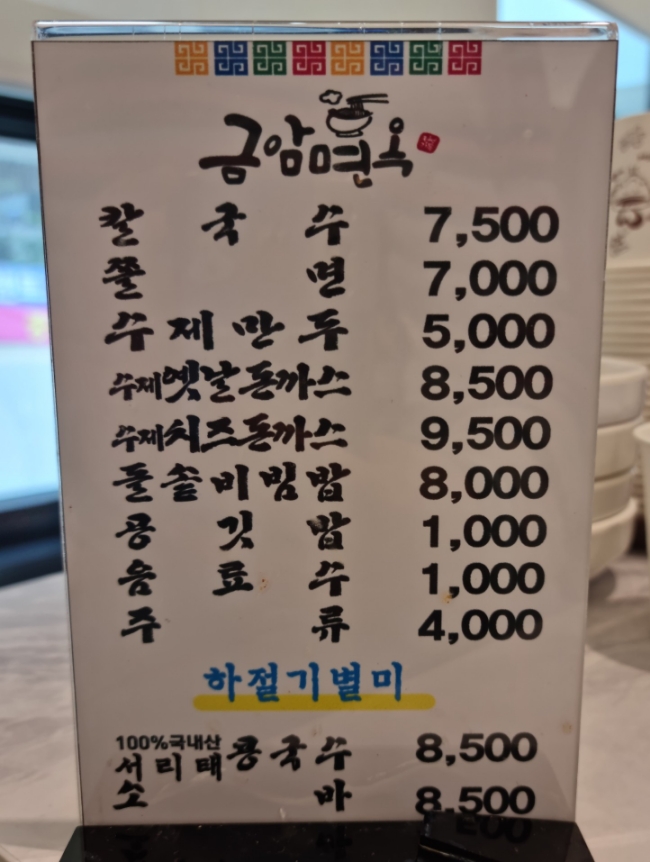 금암면옥
칼국수 7,500
쫄면 7,000
수제만두 5,000
수제옛날돈까스 8,500
수제치즈돈까스 9,500
돌솥비빔밥 8,000
공깃밥 1,000
음료수 1,000
주류 4,000
하절기별미
100%국내산
서리태콩국수 8,500
소바 8,500